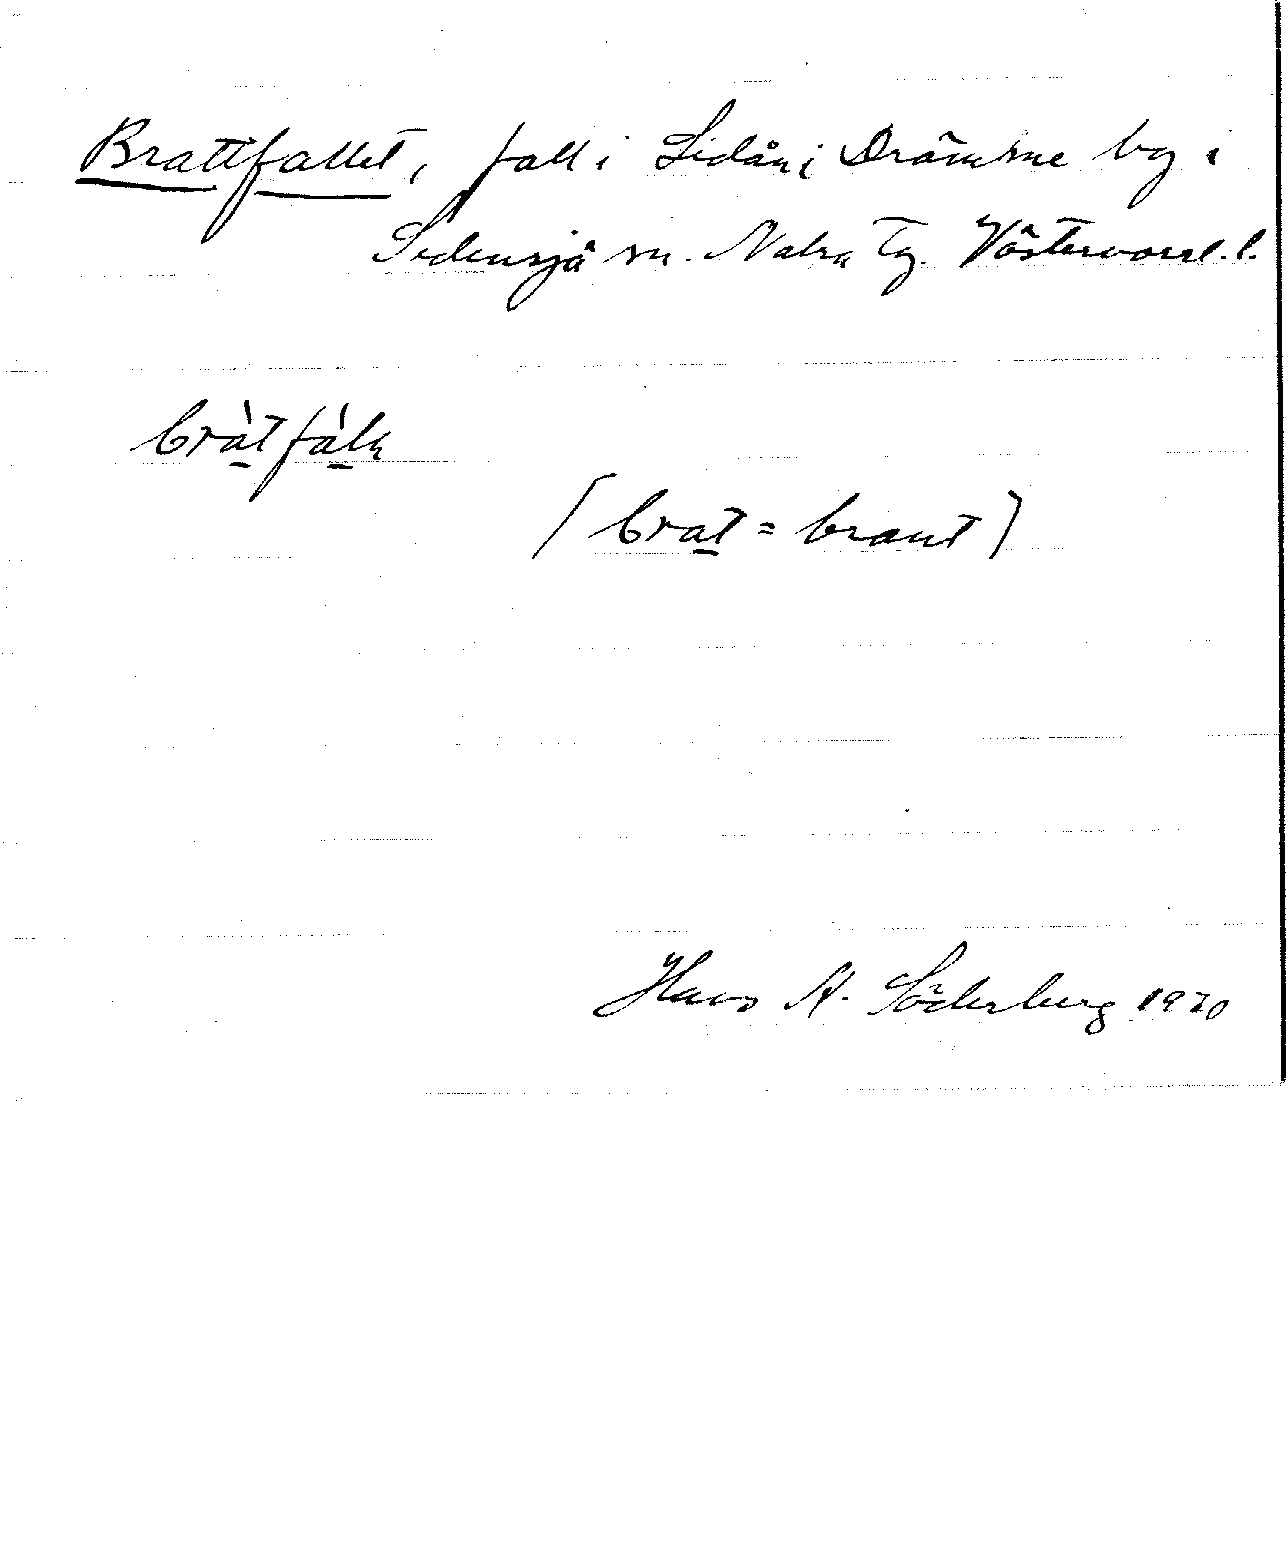 Brattfallet, fall i Sidån i Drömme by i
Sidensjö sn. Nätra Tg. Västernorrl. l.
bràtfálṇ
(brat = brant)
Hans A. Söderberg 1920